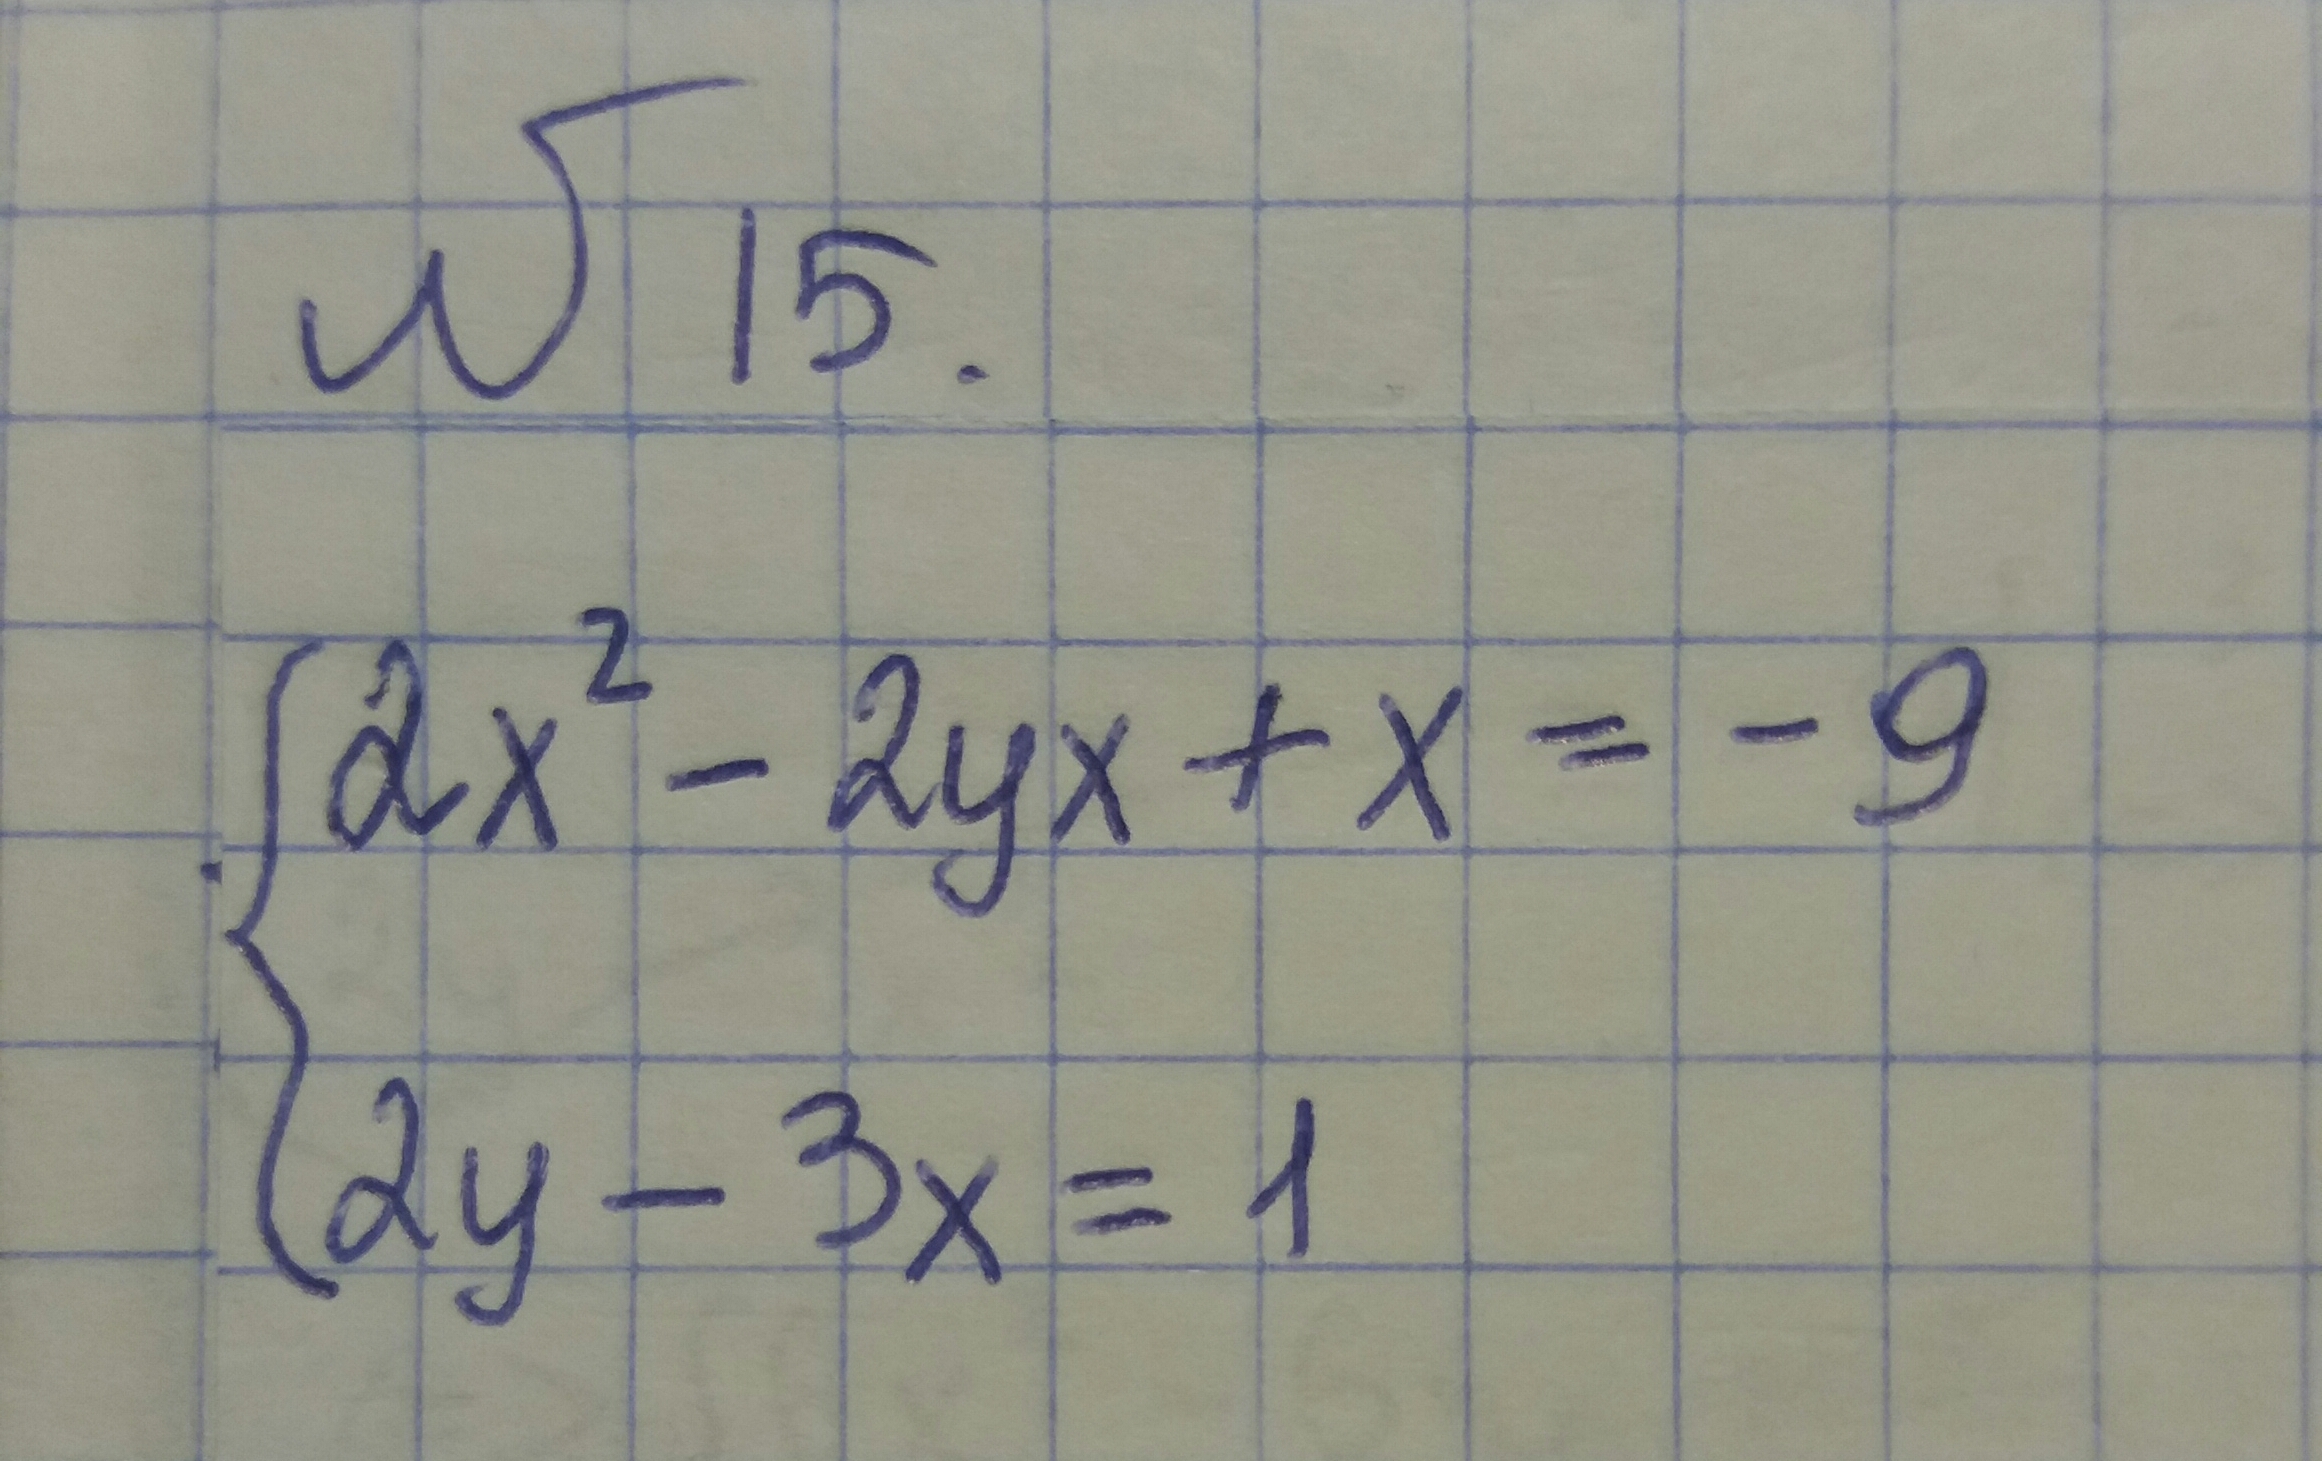 № 15.
2x² - 2yx + x = - 9
2y - 3x = 1